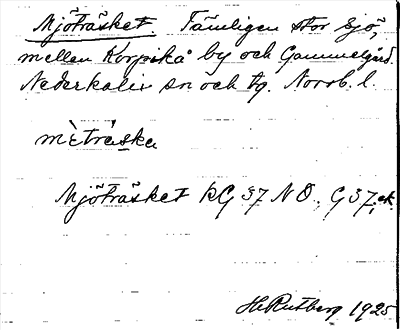 Mjöträsket. Tämligen stor sjö,
mellen Korpikå by och Gammelgård.
Nederkalix sn och tg. Norrb. l.
mètràska
Mjöträsket kG 37 N O., G 37, ek.
H Rutberg 1925